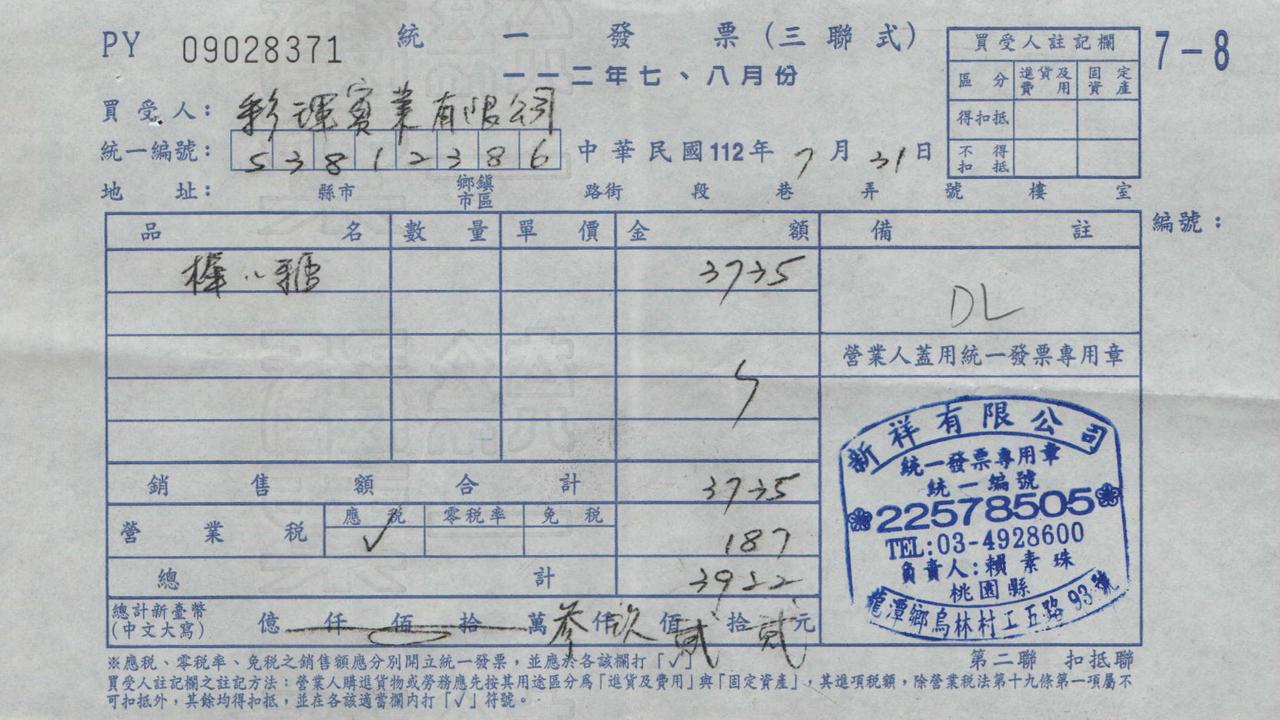 PY 09028371 統一發票(三聯式)
一一二年七、八月份
7-8
買受人註記欄
區分 進貨及費用 固定資產
得扣抵
不得扣抵
買受人: 彩琿實業有限公司
統一編號: 53812386 中華民國112年7月31日
地址: 縣市 鄉鎮市區 路街 段 巷 弄 號 樓 室
編號:
品名 數量 單價 金額 備註
3735
DL
營業人蓋用統一發票專用章
銷售額合計 3735
營業稅 應稅 ✓ 零稅率 免稅 187
總計 3922
總計新臺幣(中文大寫) 億 仟 佰 拾 萬 參 仟 玖 佰 貳 拾 貳 元
新祥有限公司
統一發票專用章
統一編號
22578505
TEL:03-4928600
負責人:賴素珠
桃園縣
龍潭鄉烏林村工五路93號
第二聯 扣抵聯
※應稅、零稅率、免稅之銷售額應分別開立統一發票,並應於各該欄打「✓」
買受人註記欄之註記方法:營業人購進貨物或勞務應先按其用途區分為「進貨及費用」與「固定資產」,其進項稅額,除營業稅法第十九條第一項屬不
可扣抵外,其餘均得扣抵,並在各該適當欄內打「✓」符號。